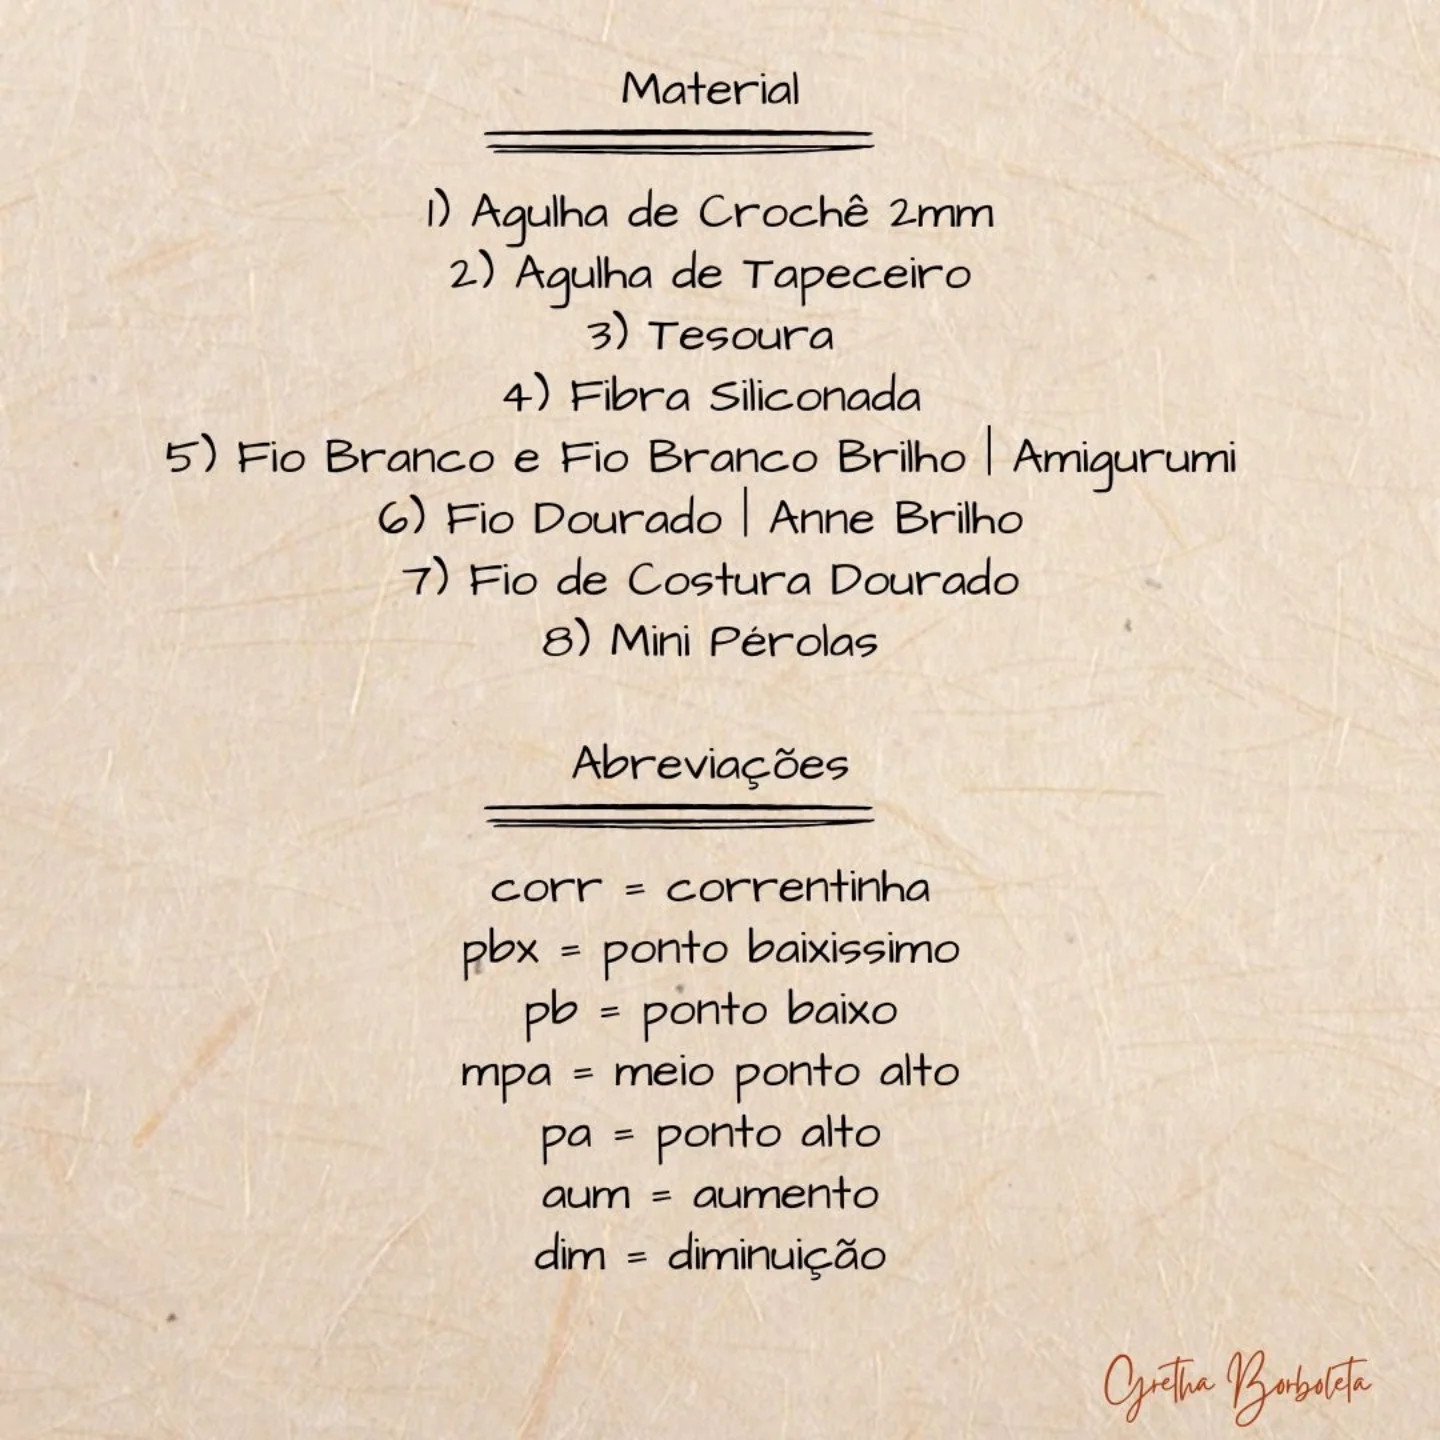 Material
1) Agulha de Crochê 2mm
2) Agulha de Tapeceiro
3) Tesoura
4) Fibra Siliconada
5) Fio Branco e Fio Branco Brilho | Amigurumi
6) Fio Dourado | Anne Brilho
7) Fio de Costura Dourado
8) Mini Pérolas
Abreviações
corr = correntinha
pbx = ponto baixissimo
pb = ponto baixo
mpa = meio ponto alto
pa = ponto alto
aum = aumento
dim = diminuição
Gretha Borboleta